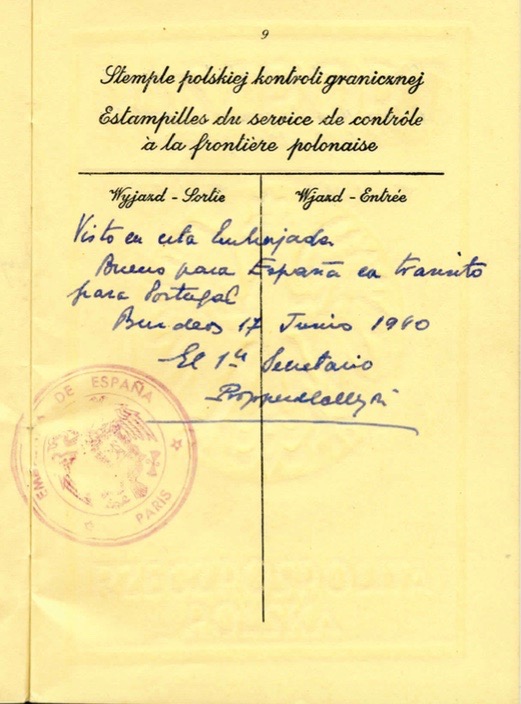 9
Stemple polskiej kontroli granicznej
Estampilles du service de contrôle
à la frontière polonaise
Wyjazd - Sortie
Wjazd - Entrée
Visto en esta Embajada
Bueno para España en transito
para Portugal
Burdeos 17 Junio 1940
El 1er Secretario
EMBAJADA DE ESPAÑA
PARIS